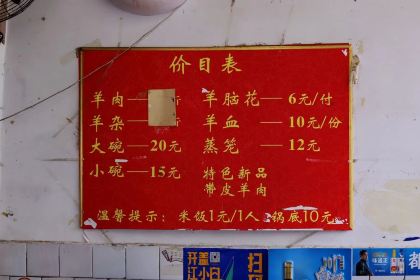 价目表
羊肉—
羊杂—
大碗—20元
小碗—15元
羊脑花—6元/付
羊血—10元/份
蒸笼—12元
特色新品
带皮羊肉
温馨提示：米饭1元/1人 锅底10元
开盖扫
江小白